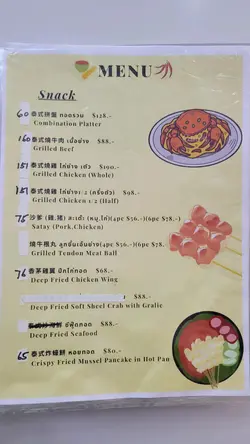 MENU
Snack
60 泰式拼盤 ทอดรวม $138.-
Combination Platter
160 泰式燒牛肉 เนื้อย่าง $88.-
Grilled Beef
151 泰式燒雞 ไก่ย่าง (ตัว) $190.-
Grilled Chicken (Whole)
151 泰式燒雞 ไก่ย่าง1/2 (ครึ่งตัว) $98.-
Grilled Chicken 1/2 (Half)
75 沙爹 (雞,豬) สะเต๊ะ (หมู,ไก่)(4pc $56.-)(6pc $78.-)
Satay (Pork,Chicken)
燒牛根丸 ลูกชิ้นเอ็นย่าง(4pc $56.-)(6pc $78.
Grilled Tendon Meat Ball
76 香茅雞翼 ปีกไก่ทอด $68.-
Deep Fried Chicken Wing
$88.-
Deep Fried Soft Sheel Crab with Gralic
ซีฟู้ดทอด $88.-
Deep Fried Seafood
65 泰式炸蠔餅 หอยทอด $80.-
Crispy Fried Mussel Pancake in Hot Pan